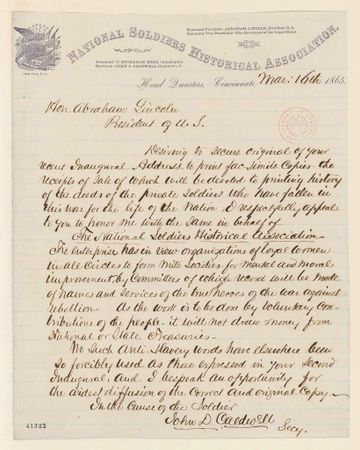 NATIONAL SOLDIERS HISTORICAL ASSOCIATION.
Honorary President—ABRAHAM LINCOLN, President U.S.
President—T. BUCHANAN READ,
JOHN D. CALDWELL,
Head Quarters, Cincinnati, Mar: 16th 1865.
Hon. Abraham Lincoln
President of U.S.
Desiring to secure original of your
recent Inaugural Address to print fac-simile Copies the
receipts of Sale of which will be devoted to printing history
of the deeds of the private Soldiers who have fallen in
this war for the life of the Nation I respectfully appeal
to you to honor me with the Same in behalf of
The National Soldiers Historical Association—
The enterprise has in view organizations of loyal women
in all Circles to form with Societies for mental and moral
improvement, by Committees of which record will be made
of names and services of the true heroes of the war against
rebellion— As the work is to be done by Voluntary Con-
tributions of the people—it will not draw money from
National or State Treasuries—
No Such Anti Slavery words have elsewhere been
So forcibly used as those expressed in your Second
Inaugural, And I bespeak an opportunity for
the widest diffusion of the Correct And original Copy—
In the Cause of the Soldier
John D Caldwell
Secy.
41322